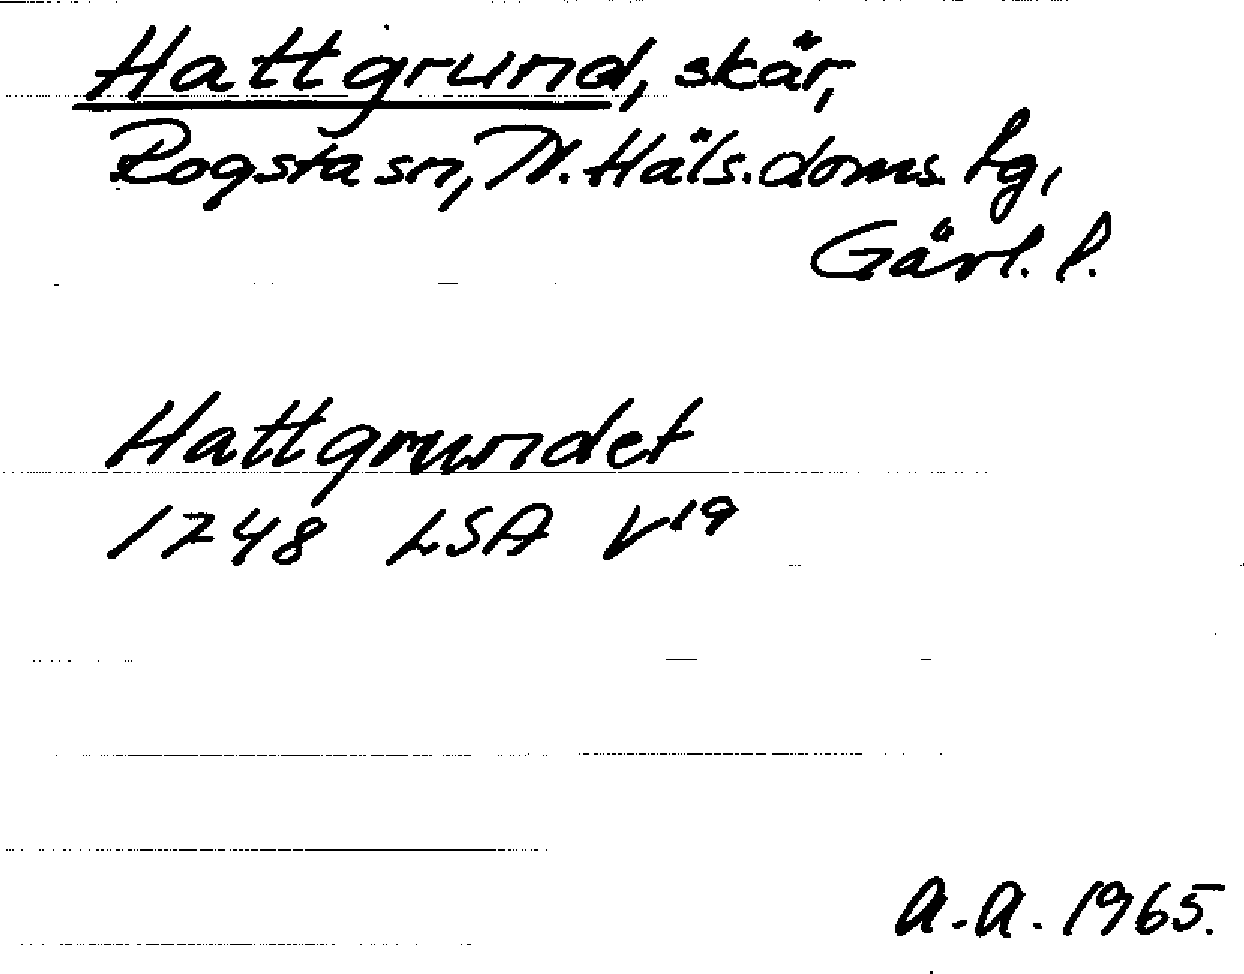 Hattgrund, skär,
Rogsta sn, N. Häls. doms. fg,
Gävl. l.
Hattgrundet
1748 LSA V19
A.A. 1965.